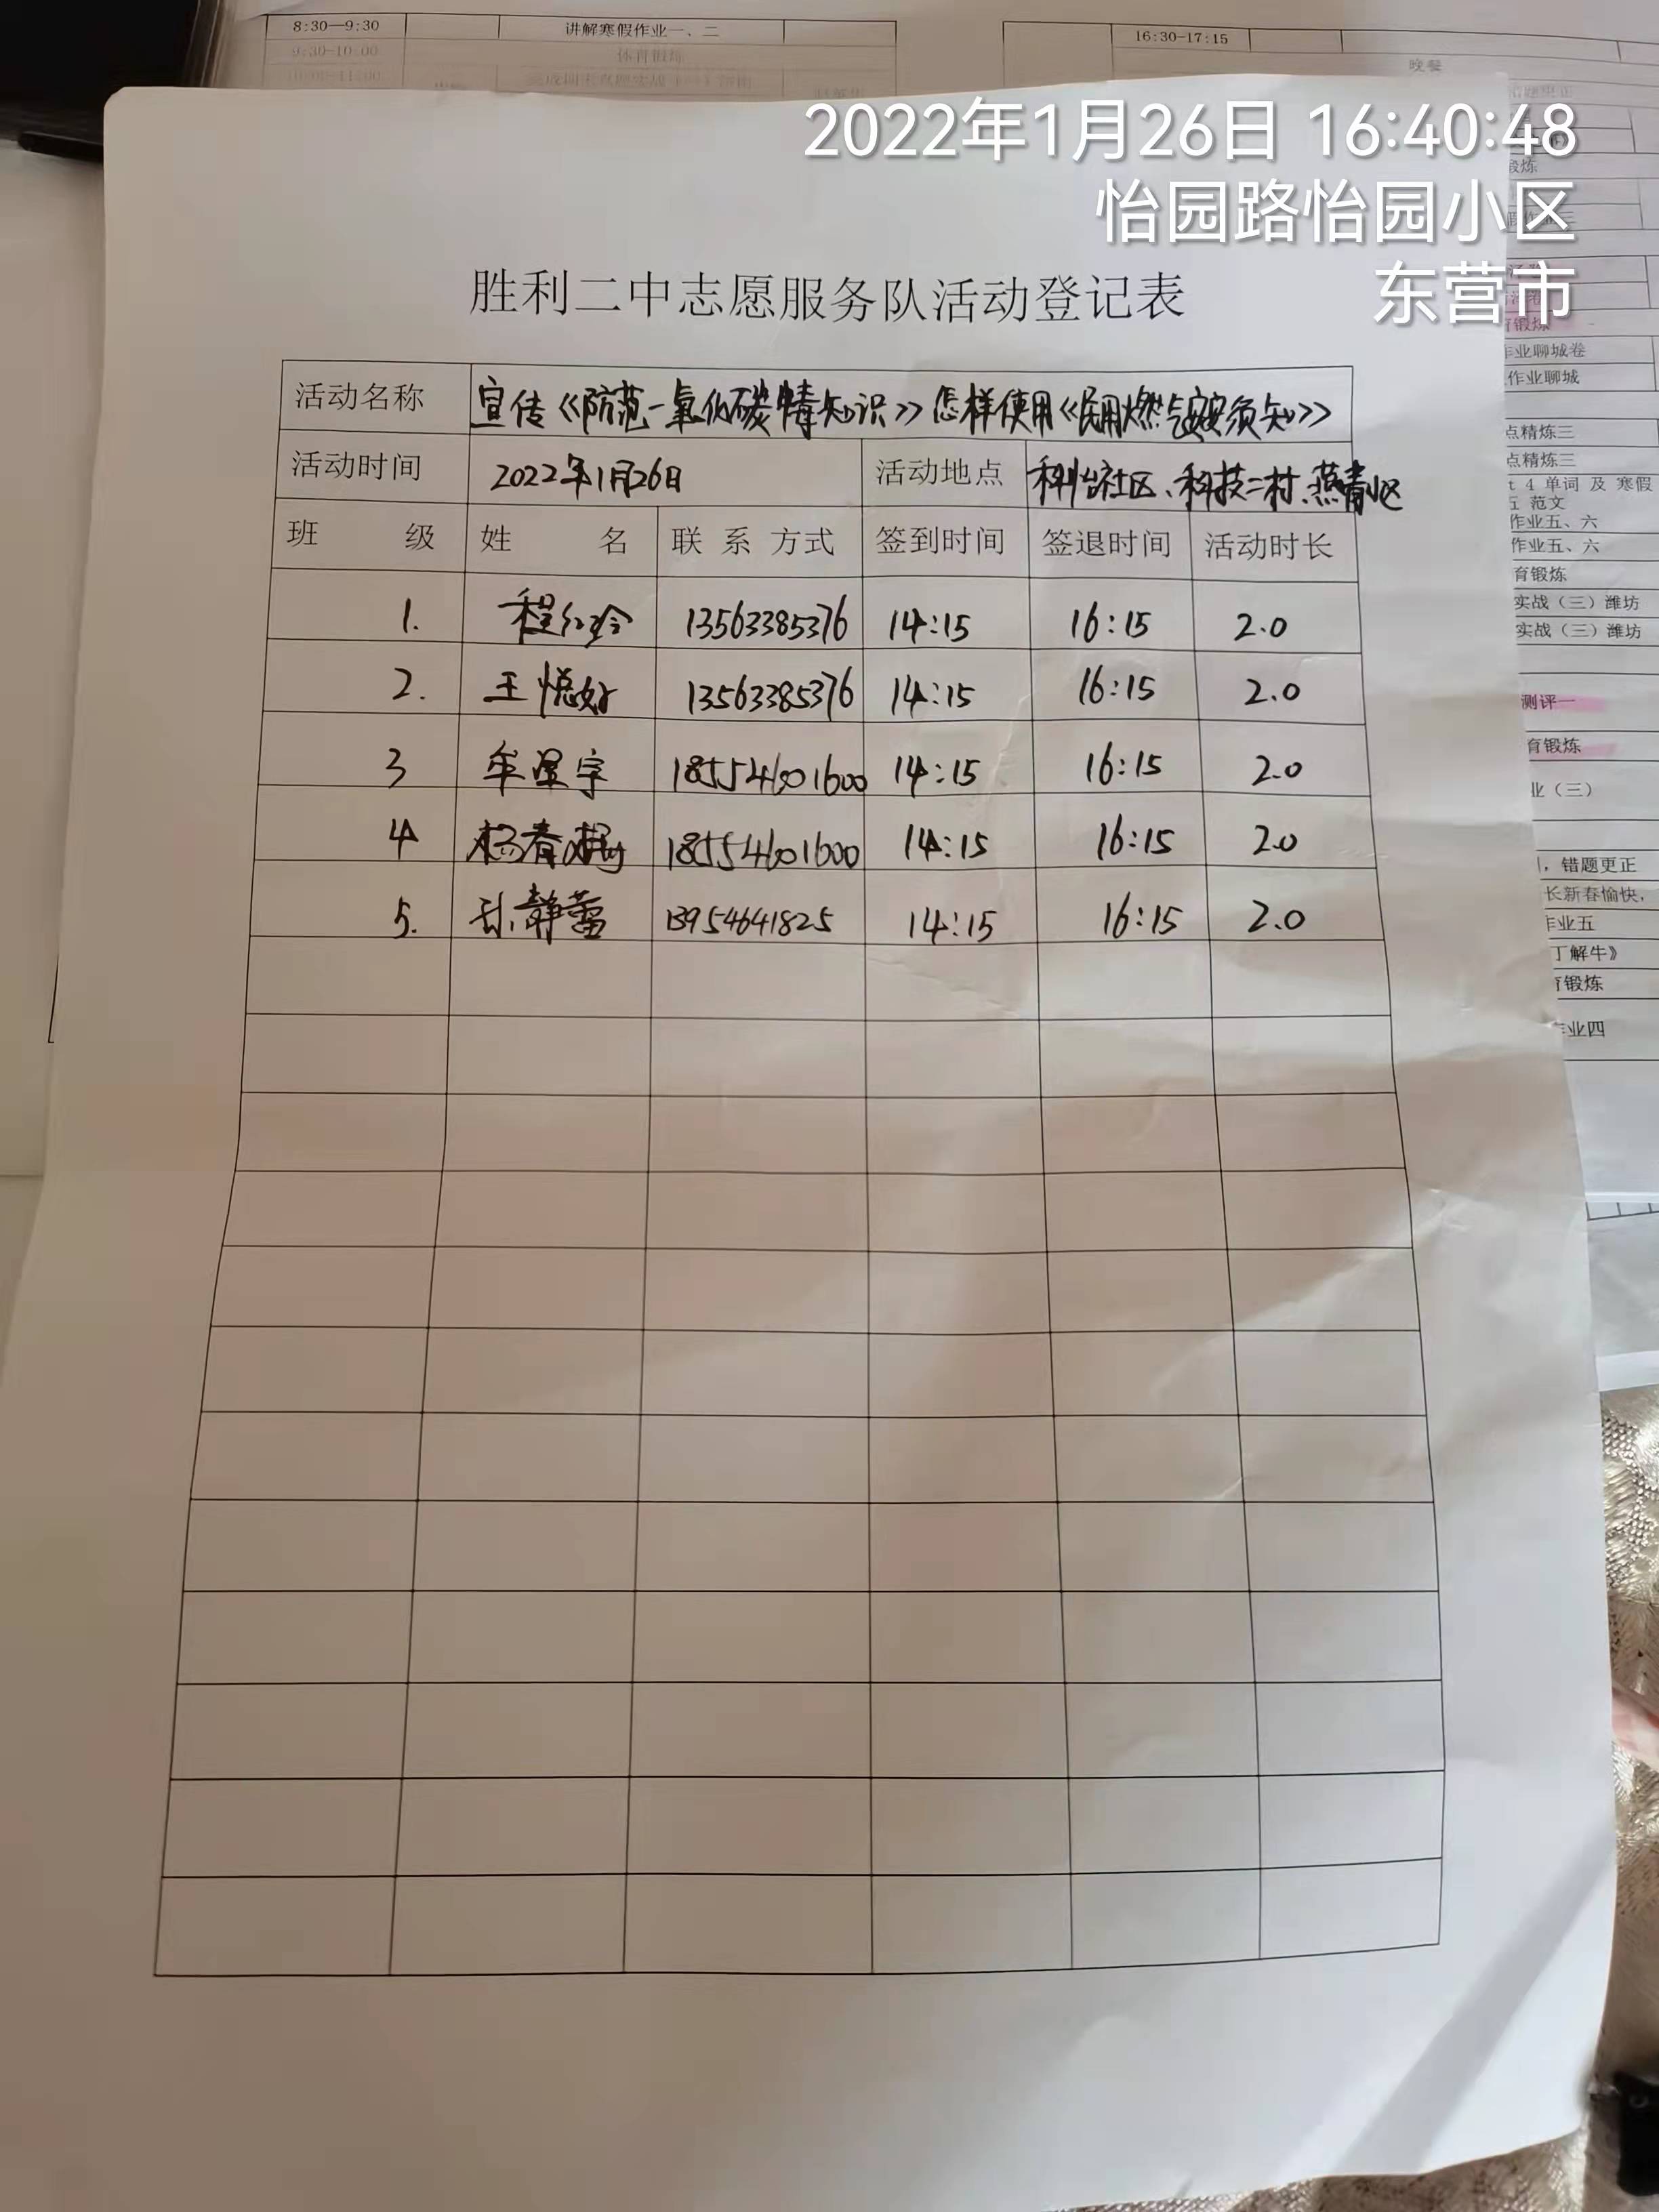 8:30—9:30 讲解寒假作业一、二
9:30-10:00 体育锻炼
16:30-17:15
晚餐
2022年1月26日 16:40:48
怡园路怡园小区
东营市
胜利二中志愿服务队活动登记表
活动名称 宣传《防范一氧化碳中毒知识》怎样使用《民用燃气安全须知》
活动时间 2022年1月26日 活动地点 科怡社区、科技二村、燕青小区
班 级 姓 名 联 系 方式 签到时间 签退时间 活动时长
1. 程红玲 13563385376 14:15 16:15 2.0
2. 王悦如 13563385376 14:15 16:15 2.0
3 牟星宇 18554601600 14:15 16:15 2.0
4 杨春梅 18554601600 14:15 16:15 2.0
5. 孙静蕾 13954641825 14:15 16:15 2.0
锻炼
育锻炼
作业聊城卷
作业聊城
点精炼三
点精炼三
t 4 单词 及 寒假
五 范文
作业五、六
作业五、六
育锻炼
实战（三）潍坊
实战（三）潍坊
测评一
育锻炼
业（三）
，错题更正
长新春愉快，
作业五
丁解牛》
育锻炼
作业四